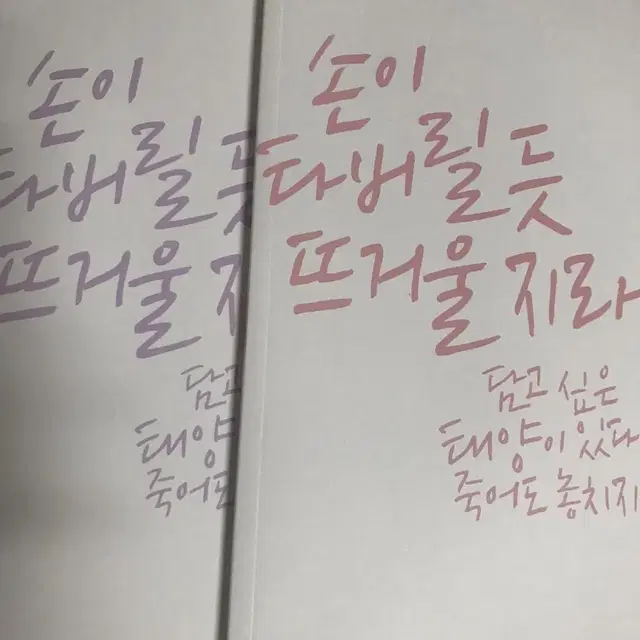 손이
타버릴 듯
뜨거울지라
담고
태양
죽어도
손이
타버릴 듯
뜨거울지라
담고 싶은
태양이 있다
죽어도 놓치지